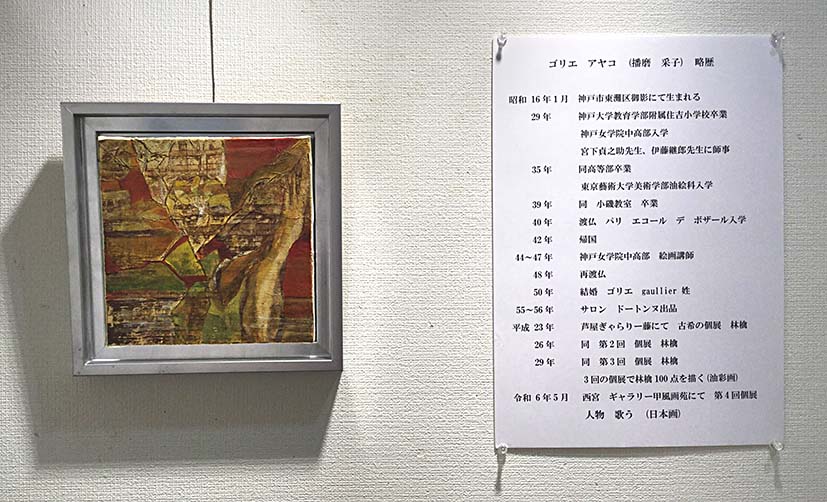 ゴリエ アヤコ (播磨 采子) 略歴
昭和 16年1月 神戸市東灘区御影にて生まれる
29年 神戸大学教育学部附属住吉小学校卒業
神戸女学院中高部入学
宮下貞之助先生、伊藤継郎先生に師事
35年 同高等部卒業
東京藝術大学美術学部油絵科入学
39年 同 小磯教室 卒業
40年 渡仏 パリ エコール デ ボザール入学
42年 帰国
44～47年 神戸女学院中高部 絵画講師
48年 再渡仏
50年 結婚 ゴリエ gaullier 姓
55～56年 サロン ドートンヌ出品
平成 23年 芦屋ぎゃらりー藤にて 古希の個展 林檎
26年 同 第2回 個展 林檎
29年 同 第3回 個展 林檎
3回の個展で林檎100点を描く(油彩画)
令和 6年5月 西宮 ギャラリー甲風画苑にて 第4回個展
人物 歌う (日本画)